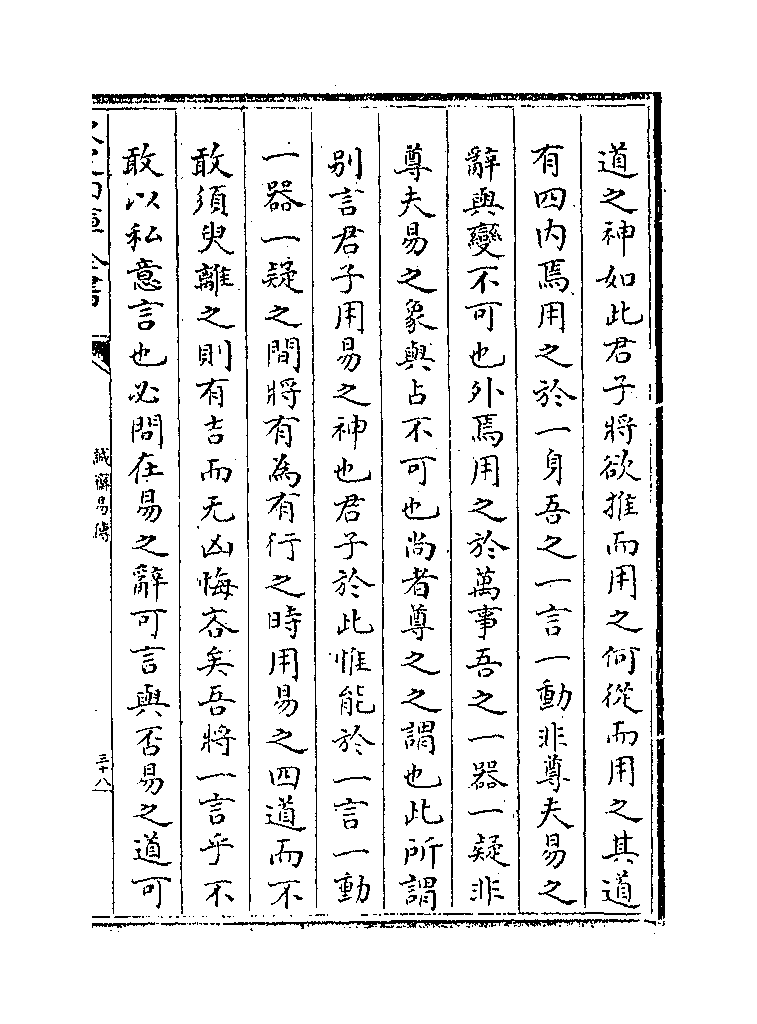 道之神如此君子將欲推而用之何從而用之其道
有四内焉用之於一身吾之一言一動非尊夫易之
辭與變不可也外焉用之於萬事吾之一器一疑非
尊夫易之象與占不可也尚者尊之之謂也此所謂
别言君子用易之神也君子於此惟能於一言一動
一器一疑之間將有為有行之時用易之四道而不
敢須臾離之則有吉而无凶悔吝矣吾將一言乎不
敢以私意言也必問在易之辭可言與否易之道可
誠齋易傳
三十八